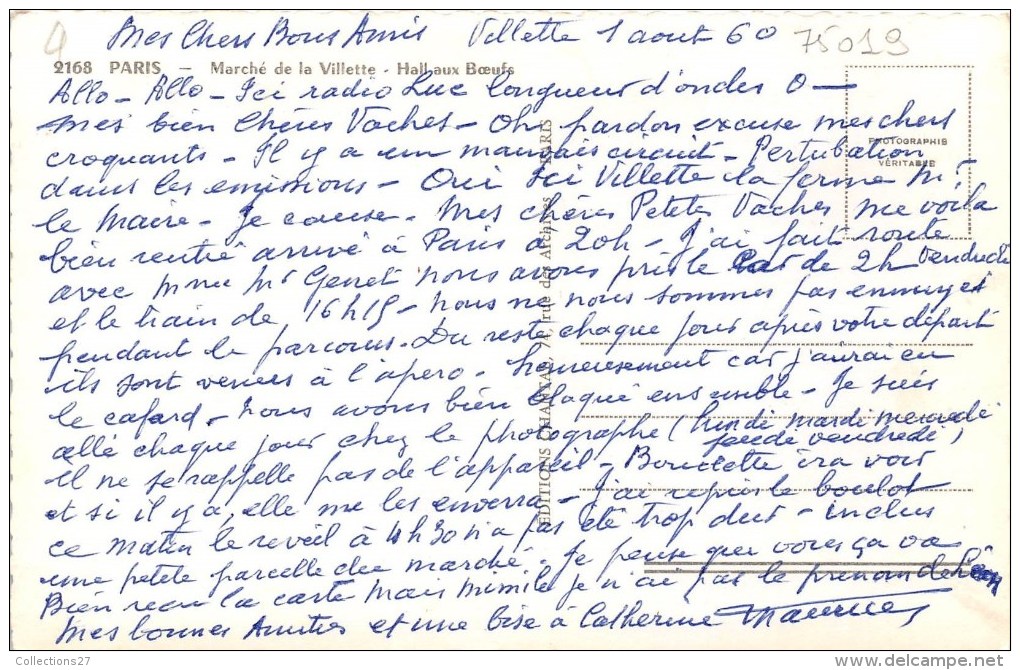 Mes Chers Bons Amis Villette 1 aout 60 75019
2168 PARIS — Marché de la Villette - Hall aux Bœufs
Allo - Allo - Ici radio Luc longueur d'ondes 0 —
Mes bien Chères Vaches - Oh pardon excuse mes chers
croquants - Il y a un mauvais circuit - Pertubation
PHOTOGRAPHIE
VÉRITABLE
dans les emissions - Oui Ici Villette la ferme Mr
le Maire - Je cause - Mes chères Petites Vaches me voila
bien rentré arrivé à Paris à 20h - J'ai fait route
avec Mme Mr Genet nous avons pris le car de 2h Vendredi
et le train de 16h15 - nous ne nous sommes pas ennuyés
pendant le parcours. Du reste chaque jour après votre départ
ils sont venus à l'apero - heureusement car j'aurai eu
le cafard - nous avons bien blagué ensemble - Je suis
allé chaque jour chez le photographe (lundi mardi mercredi
jeudi vendredi)
il ne se rappelle pas de l'appareil - ira voir
et si il y a, elle me les enverra - J'ai repris le boulot
ce matin le reveil à 4h30 n'a pas été trop dur - inclus
une petite parcelle du marché. Je pense que vous ça va
Bien reçu la carte mais mimile je n'ai pas le prenom de
Mes bonnes Amities et une bise à Catherine Maurice
EDITIONS CHANTAL, 74, rue des Archives - PARIS
Collections27
http://www.delcampe.net